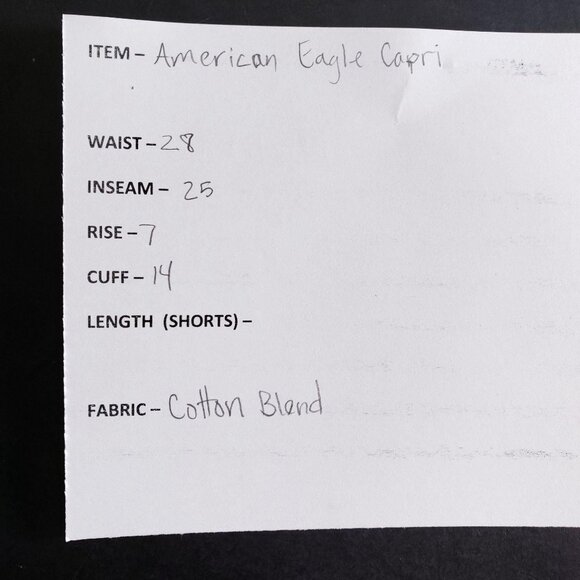 ITEM – American Eagle Capri
WAIST – 28
INSEAM – 25
RISE – 7
CUFF – 14
LENGTH (SHORTS) –
FABRIC – Cotton Blend